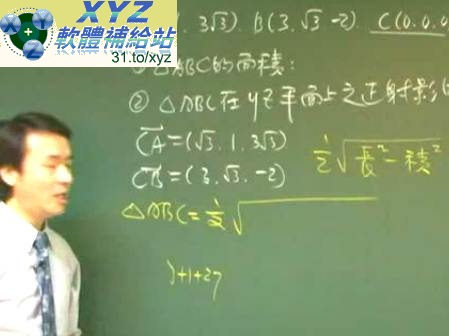 XYZ
軟體補給站
31.to/xyz
, 3√3). B(3, √3 -2). C(0.0.0
① △ABC的面積:
② △ABC在yz平面上之正射影
CA=(√3. 1. 3√3)
CB=(3. √3. -2)
½√長²-積²
△ABC=½√
3+1+27